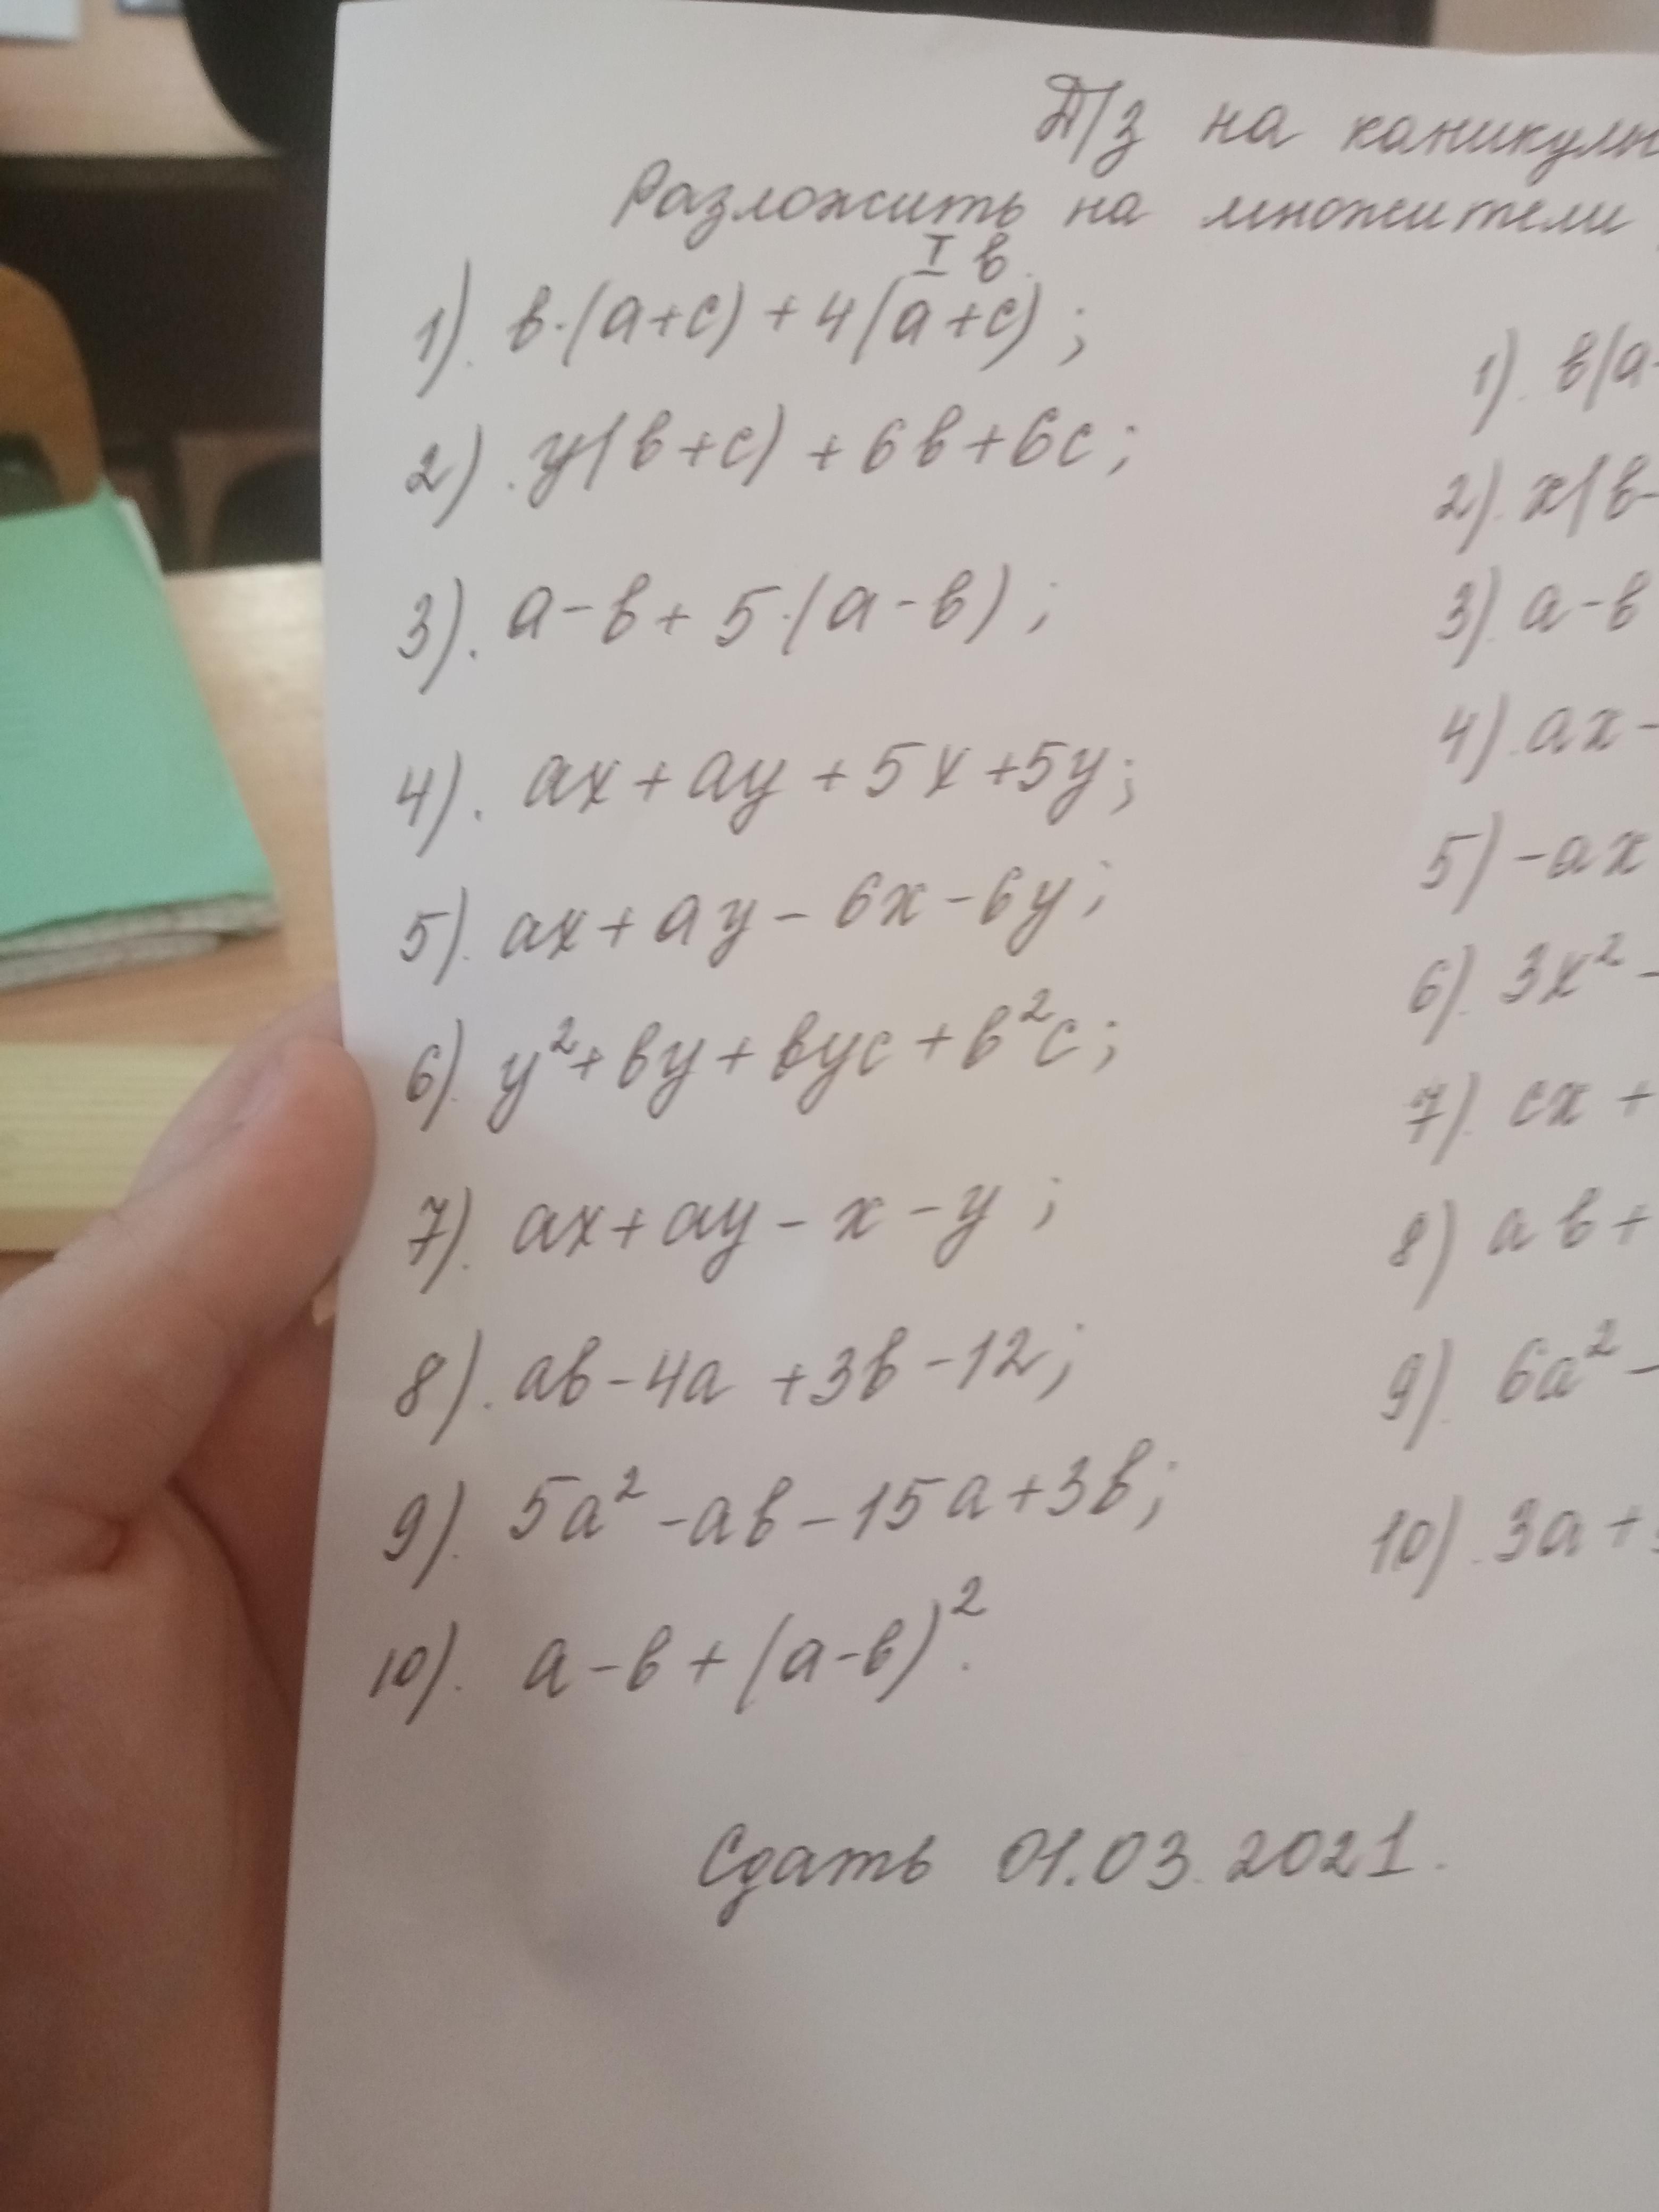 Д/з на каникулы
Разложить на множители
I в.
1). в·(a+c) + 4(a+c);
2). y(в+c) + 6в+6c;
3). a-в+ 5·(a-в);
4). ax+ay+5x+5y;
5). ax+ay-6x-6y;
6). y²+вy+вyc+в²c;
7). ax+ay-x-y;
8). aв-4a+3в-12;
9). 5a²-aв-15a+3в;
10). a-в+(a-в)².
1). в(a-
2). x(в-
3). a-в
4). ax-
5) -ax
6). 3x²-
7). cx+
8) aв+
9). 6a²-
10). 3a+
Сдать 01.03.2021.